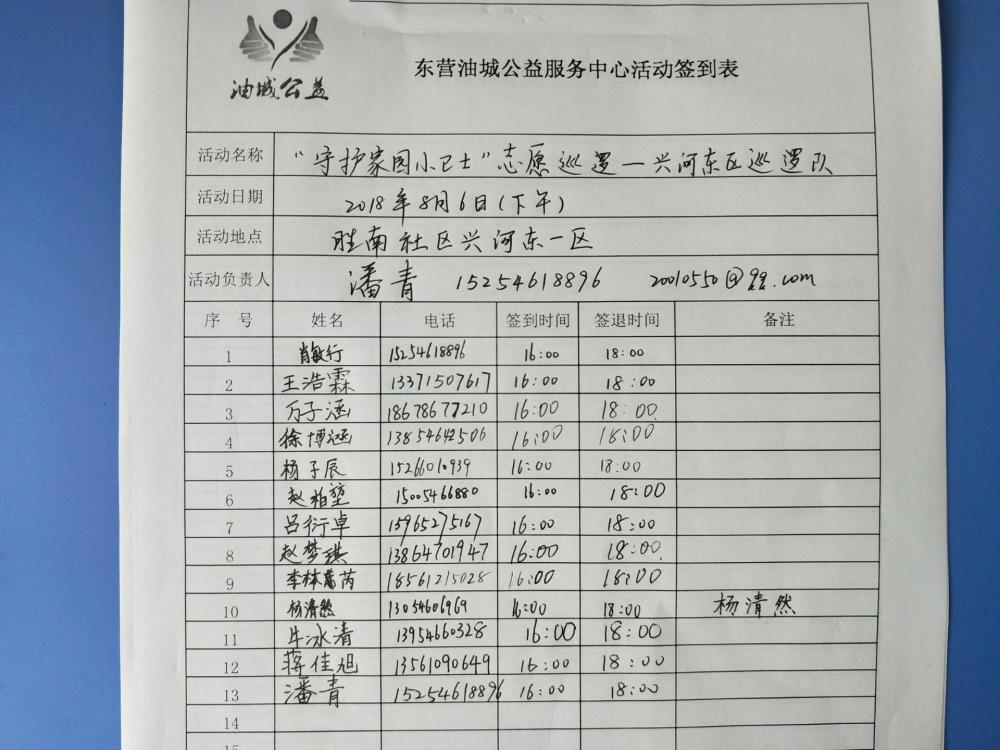 油城公益
东营油城公益服务中心活动签到表
活动名称 "守护家园小卫士"志愿巡逻—兴河东区巡逻队
活动日期 2018年8月6日(下午)
活动地点 胜南社区兴河东一区
活动负责人 潘青 15254618896 20010550@qq.com
序号 姓名 电话 签到时间 签退时间 备注
1 肖敏行 15254618896 16:00 18:00
2 王浩霖 13371507617 16:00 18:00
3 万子涵 18678677210 16:00 18:00
4 徐博涵 13854642506 16:00 18:00
5 杨子辰 15266010939 16:00 18:00
6 赵柏堃 15005466880 16:00 18:00
7 吕衍卓 15965275167 16:00 18:00
8 赵梦琪 13864701947 16:00 18:00
9 18561215028 16:00 18:00
10 杨清然 13054606969 16:00 18:00 杨清然
11 牛冰清 13954660328 16:00 18:00
12 蒋佳旭 13561090649 16:00 18:00
13 潘青 15254618896 16:00 18:00
14
15